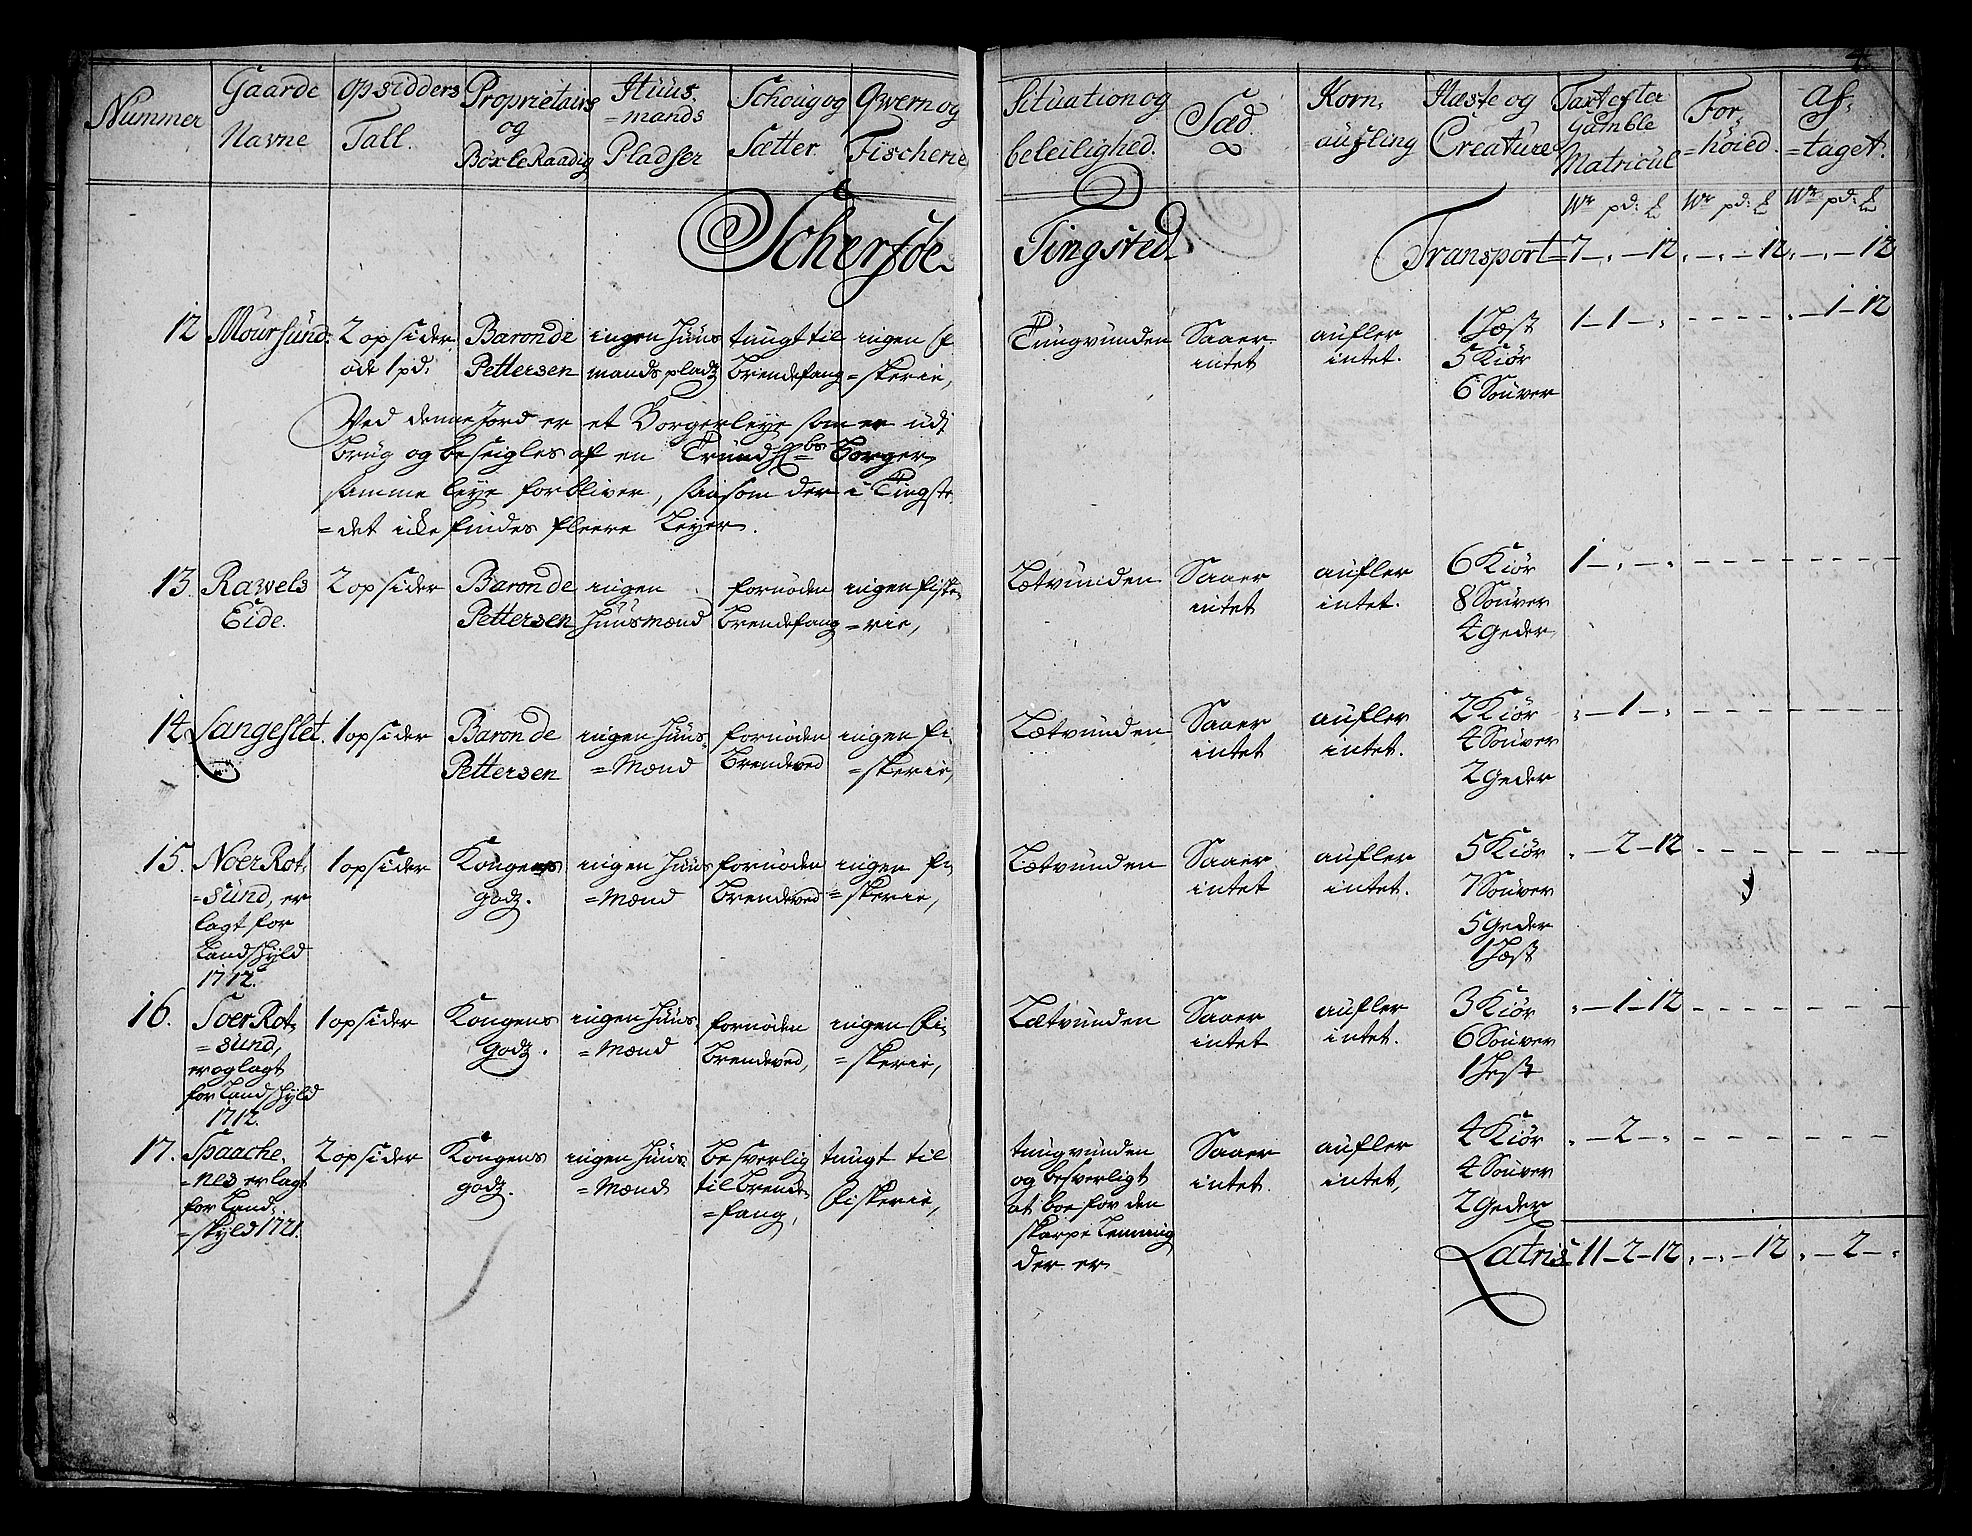 4
Nummer
Gaarde
Navne
Opsidders
Tall.
Proprietairs
og
BöxleRaadig
Huus.
=mands
Pladser
Schougog
Sætter.
Qwernog
Fischerie
Situation og
beleilighed.
Sæd.
Korn,
aufling
Hæste og
Creature
Taxt efter
Gamble
Matricul
For,
=höied.
Af,
=taget.
Wr pd: £
Wr pd: £
Wr pd: £
Schersöe
Tingsted
Transport= 7 - „ - 12 „ - „ - 12 „ - „ - 12
12 Moursund:
2 opsider,
öde 1 pd:
Baron de
Pettersen
ingen Huus
mands pladz
tungt til
brendefang
ingen fi
=skerie,
Tungvunden
Saaer
intet
aufler
intet.
1 Hæst
5 Kiör
6 Souver
1 - 1 - „
- - - - -
„ - 1 - 12
Ved denne Jord er et Borgerleye som er udi
brug og beseigles af en Trundhbs borger,
samme leye forbliver, saasom der i Tingste
=det icke findes fleere Leyer.
13. Rawels
Eide.
2 opsider
Baron de
Pettersen
ingen
Huusmænd
fornöden
brendefang
ingen fiske,
=rie,
Lætvunden
Saaer
intet
aufler
intet.
6 Kiör
8 Souver
4 Geder
1 - „ - „ - - - - - - - -
14. Langeslet.
1 opsider
Baron de
Pettersen
ingen Huus,
=Mænd
fornöden
brendeved
ingen fi,
=skerie,
Lætvunden
Saaer
intet
aufler
intet.
2 Kiör
4 Souver
2 Geder
„ - 1 - „ - - - - - - - -
15. Noer Rot,
=sund, er
lagt for
Landskyld
1712.
1 opsider
Kongens
godz.
ingen Huus
=Mænd
fornöden
brendeved
ingen fi,
=skerie,
Lætvunden
Saaer
intet
aufler
intet.
5 Kiör
7 Souver
5 Geder
1 Hæst
„ - 2 - 12 - - - - - - -
16. Soer Rot,
=sund,
er og lagt
for Landskyld
1712.
1 opsider
Kongens
Godz.
ingen Huus,
=Mænd
fornöden
brendeved,
ingen fi,
=skerie,
Lætvunden
Saaer
intet
aufler
intet.
3 Kiör
6 Souver
1 Hest
„ - 1 - 12 - - - - - - -
17. Spaache,
=nes er lagt
for Land,
=skyld 1721.
2 opsider
Kongens
godz.
ingen Huus,
=Mænd
besverlig
til brende,
=fang,
tungt til
fiskerie,
tungvunden
og besverligt
at boe for den
skarpe Lenning
der er
Saaer
intet.
aufler
intet,
4 Kiör
4 Souver
2 Geder
„ - 2 - „ - - - - - - -
Latris. 11 - 2 - 12 „ - „ - 12 „ - 2 - „